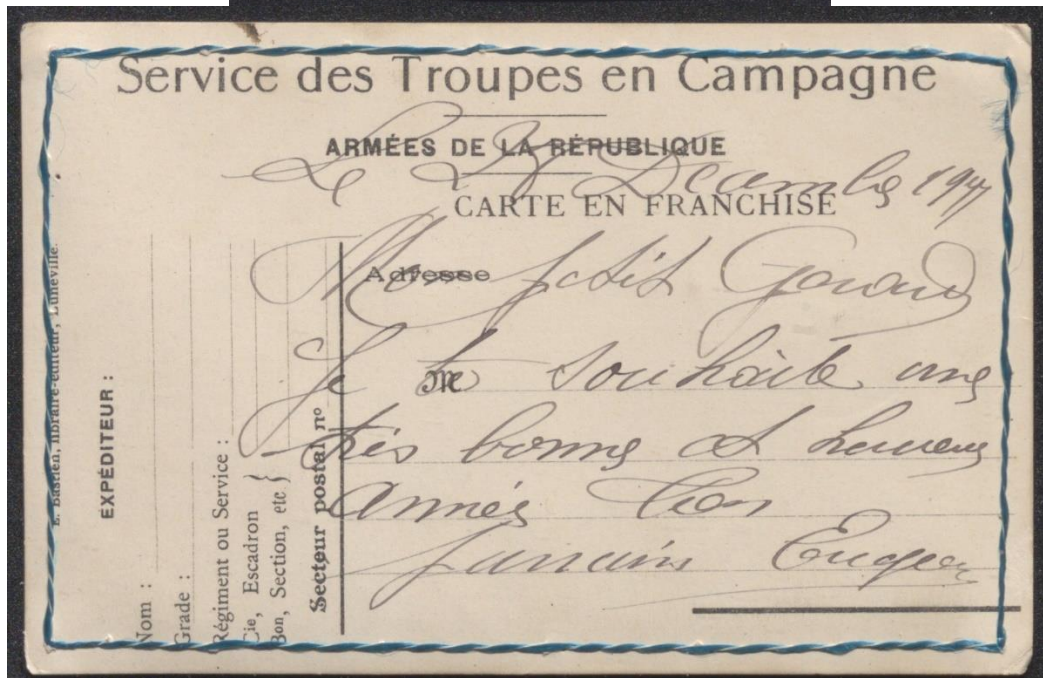 Service des Troupes en Campagne
ARMÉES DE LA RÉPUBLIQUE
Le 27 Décembre 191
CARTE EN FRANCHISE
Adresse
Mon petit Gérard
Je te souhaite une
M
très bonne et heureuse
année Ton
parrain Eugène
E. Bastien, libraire-éditeur, Lunéville.
EXPÉDITEUR :
Nom :
Grade :
Régiment ou Service :
Cie, Escadron
Bon, Section, etc }
Secteur postal n°